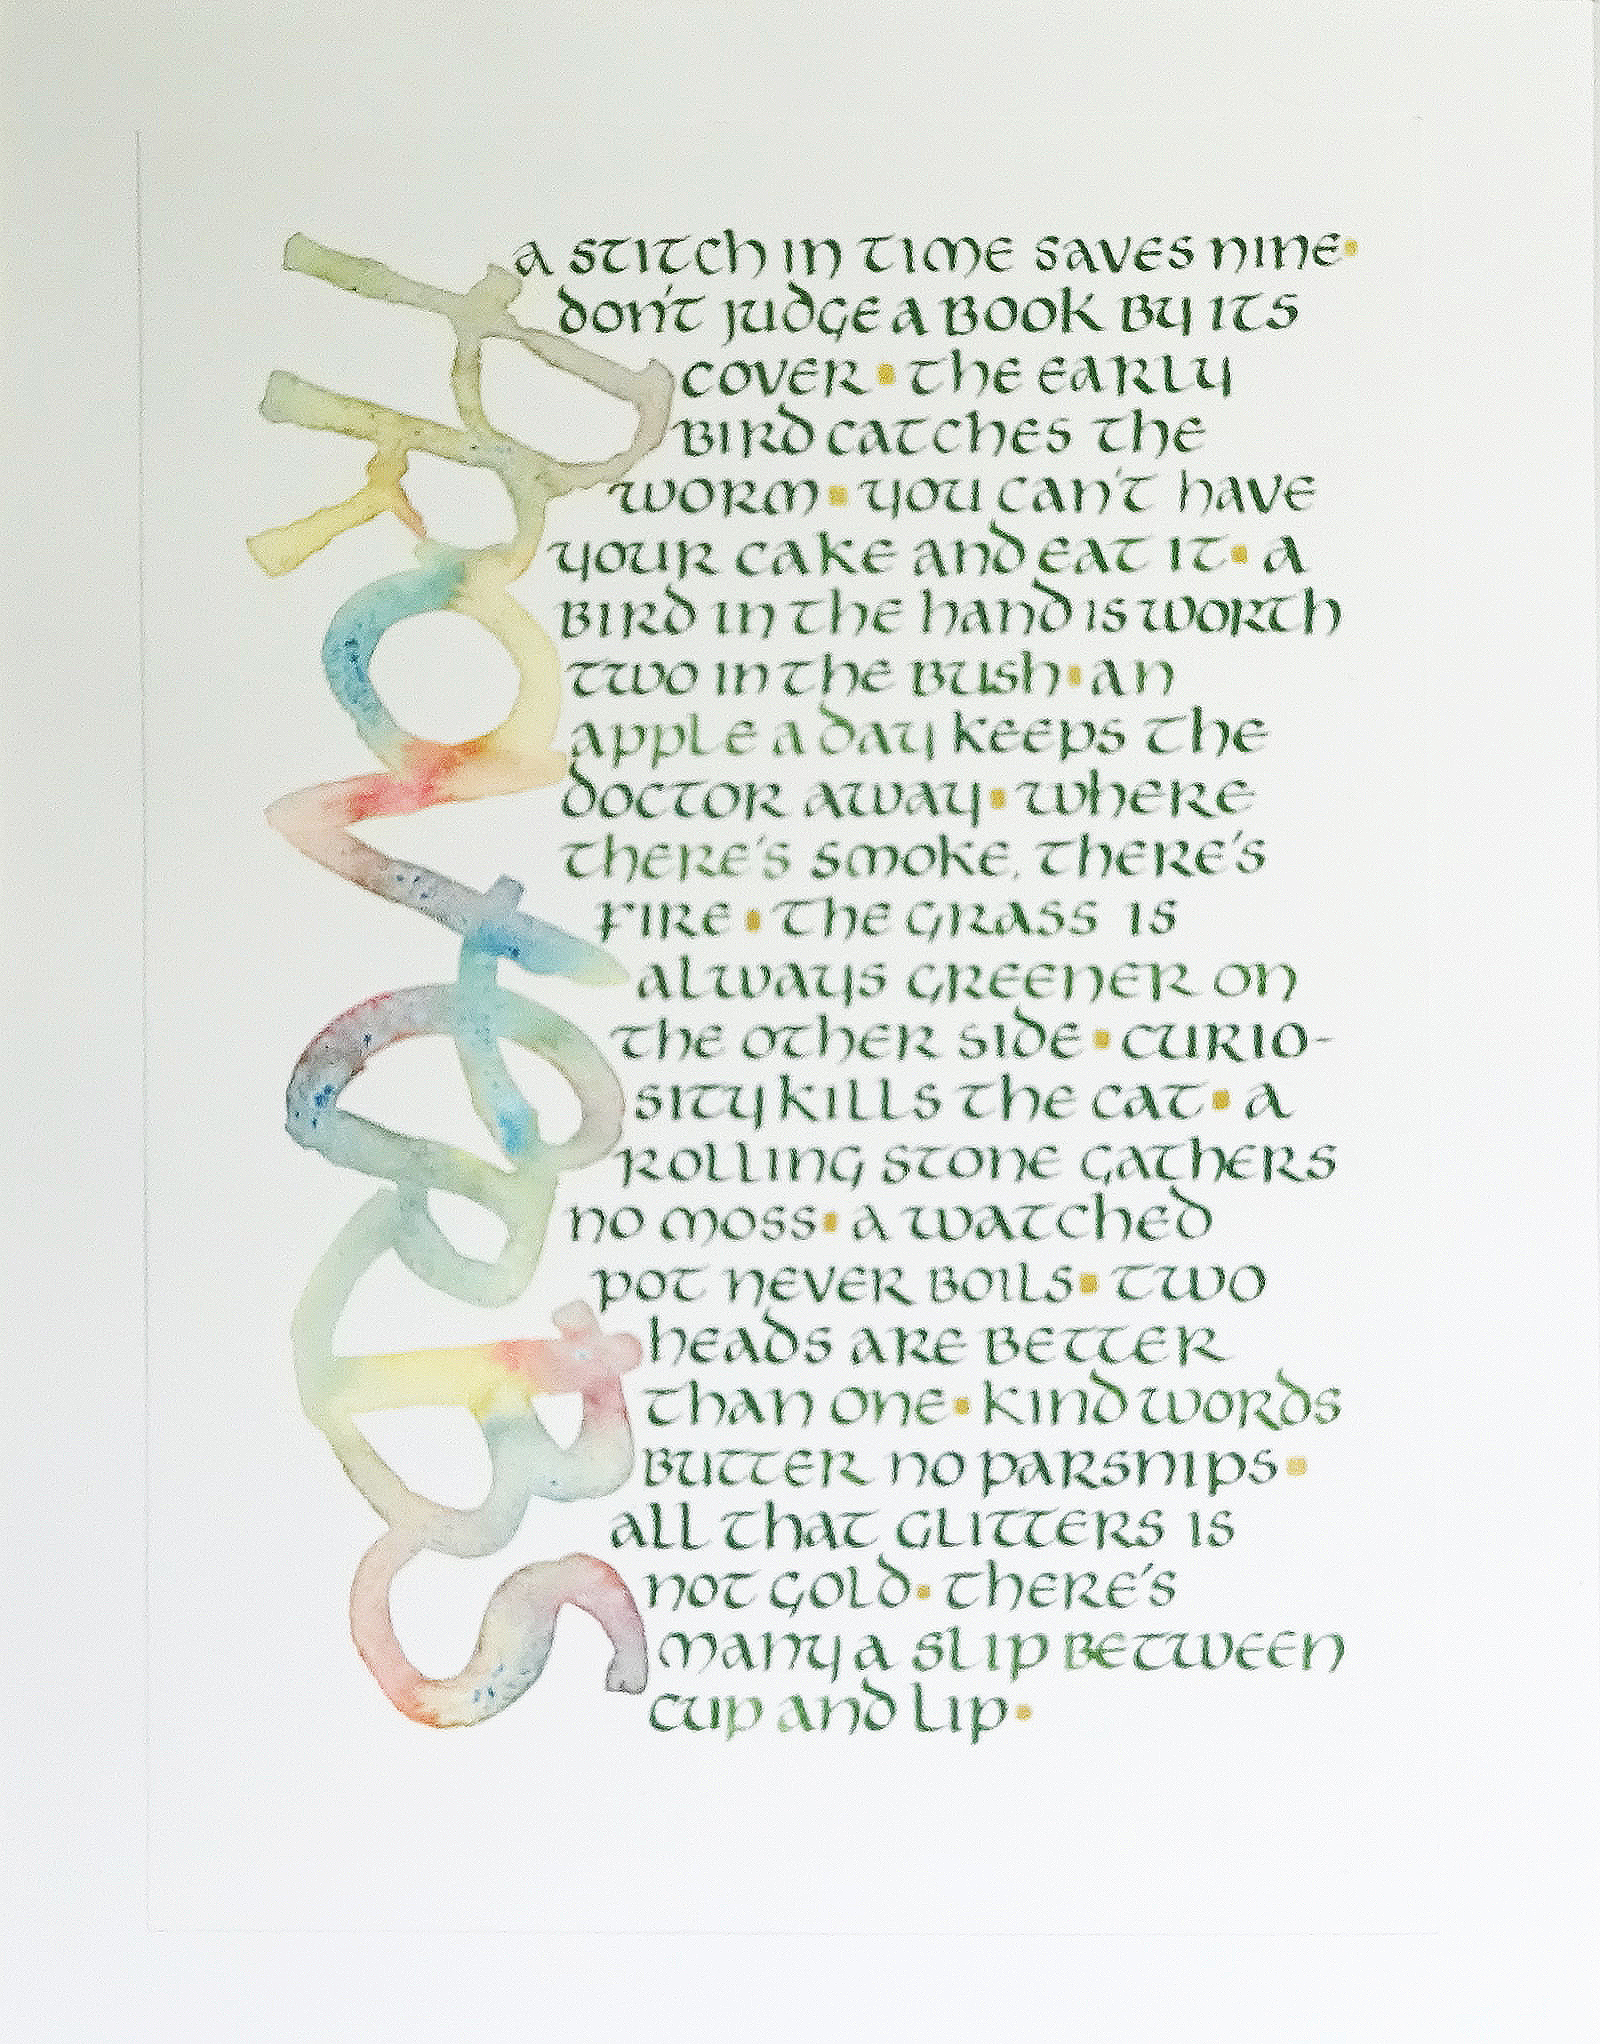 PROVERBS
a stitch in time saves nine▪
don't judge a book by its
cover▪the early
bird catches the
worm▪you can't have
your cake and eat it▪a
bird in the hand is worth
two in the bush▪an
apple a day keeps the
doctor away▪where
there's smoke, there's
fire▪the grass is
always greener on
the other side▪curio-
sity kills the cat▪a
rolling stone gathers
no moss▪a watched
pot never boils▪two
heads are better
than one▪kind words
butter no parsnips▪
all that glitters is
not gold▪there's
many a slip between
cup and lip▪